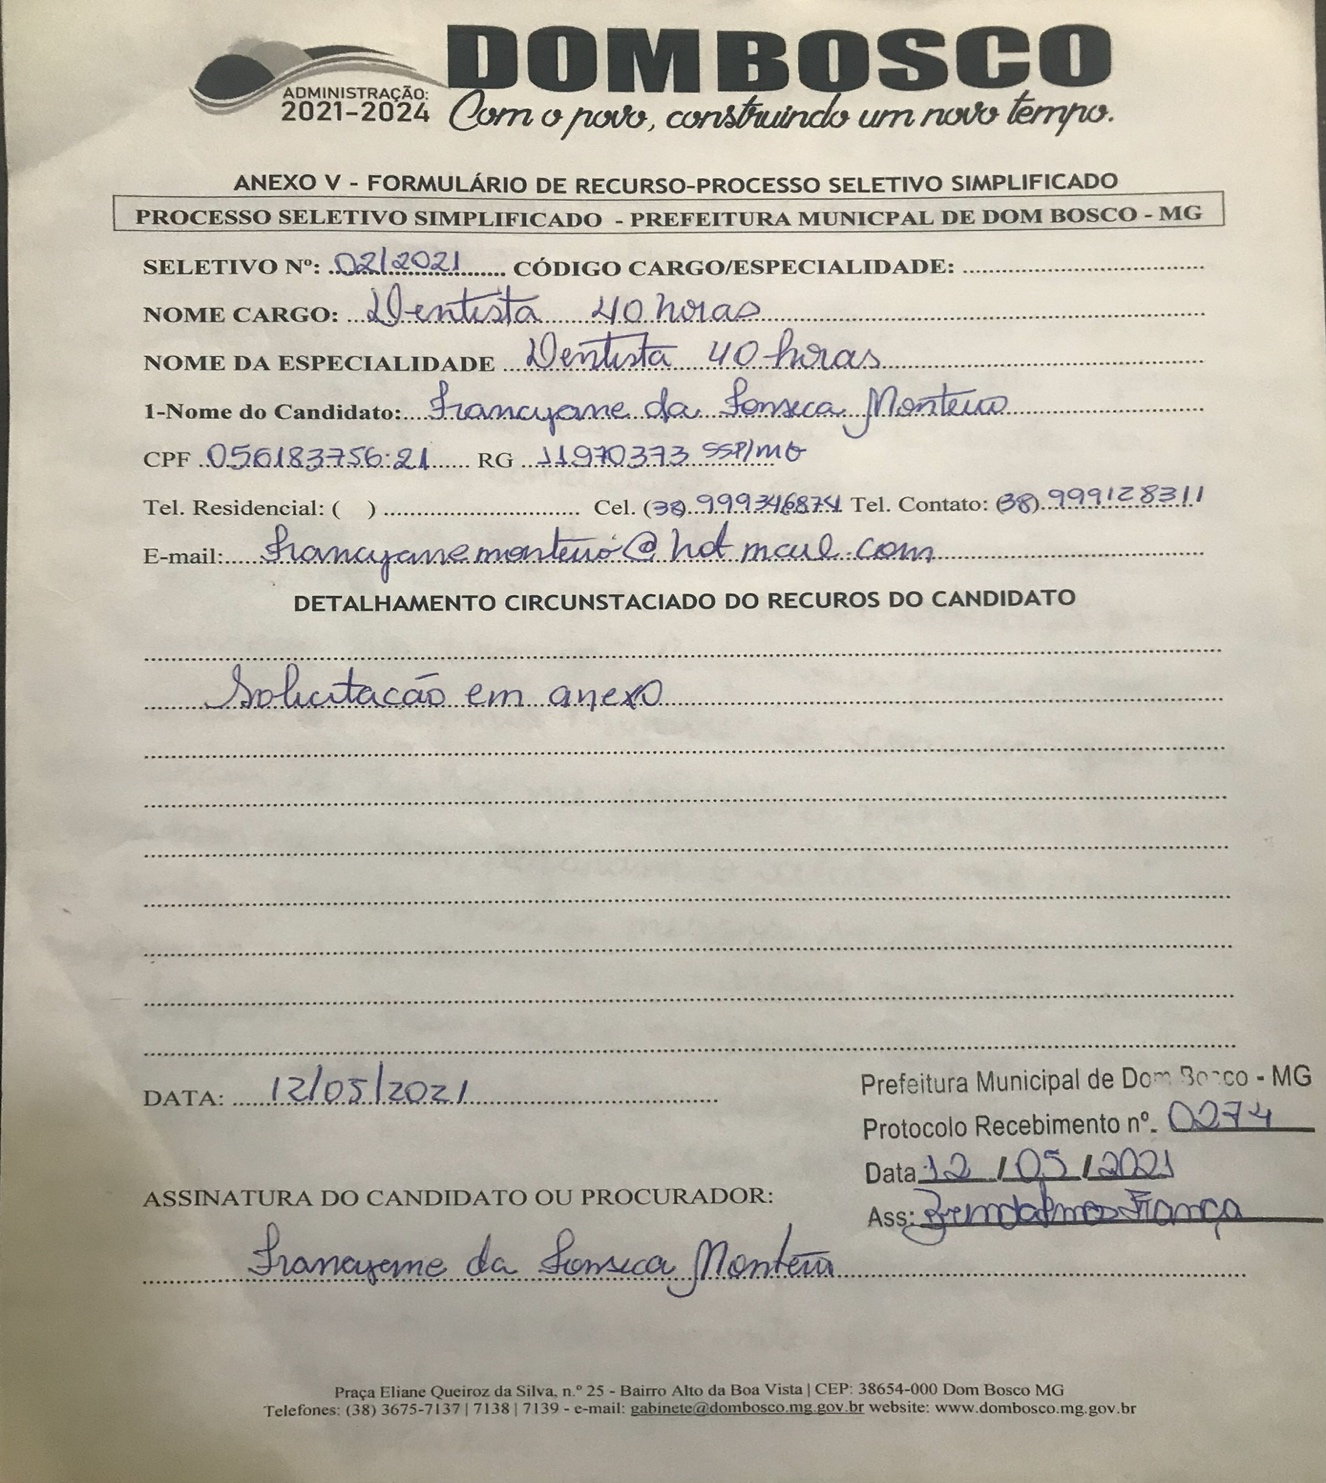 DOM BOSCO
ADMINISTRAÇÃO:
2021-2024
Com o povo, construindo um novo tempo.
ANEXO V - FORMULÁRIO DE RECURSO-PROCESSO SELETIVO SIMPLIFICADO
PROCESSO SELETIVO SIMPLIFICADO - PREFEITURA MUNICPAL DE DOM BOSCO - MG
SELETIVO Nº: 02/2021 CÓDIGO CARGO/ESPECIALIDADE:
NOME CARGO: Dentista 40 horas
NOME DA ESPECIALIDADE Dentista 40 horas
1-Nome do Candidato: Francyane da Fonseca Monteiro
CPF 056183756:21 RG 11970373 SSP/MG
Tel. Residencial: ( ) Cel. (38) 999346874 Tel. Contato: (38) 999128311
E-mail: francyanemonteiro@hotmail.com
DETALHAMENTO CIRCUNSTACIADO DO RECUROS DO CANDIDATO
Solicitação em anexo
DATA: 12/05/2021
Prefeitura Municipal de Dom Bosco - MG
Protocolo Recebimento nº. 0274
Data 12/05/2021
ASSINATURA DO CANDIDATO OU PROCURADOR:
Ass: França
Francyane da Fonseca Monteiro
Praça Eliane Queiroz da Silva, n.º 25 - Bairro Alto da Boa Vista | CEP: 38654-000 Dom Bosco MG
Telefones: (38) 3675-7137 | 7138 | 7139 - e-mail: gabinete@dombosco.mg.gov.br website: www.dombosco.mg.gov.br